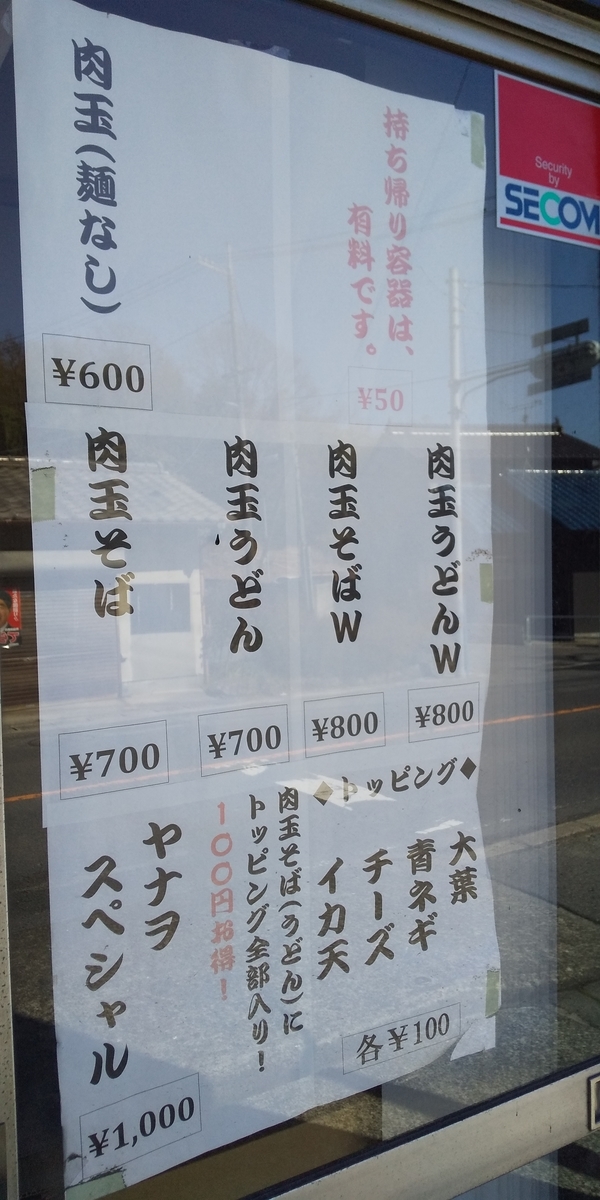 持ち帰り容器は、
有料です。
¥50
肉玉(麺なし)
¥600
肉玉うどんW
¥800
肉玉そばW
¥800
肉玉うどん
¥700
肉玉そば
¥700
◆トッピング◆
大葉
青ネギ
チーズ
イカ天
各¥100
肉玉そば(うどん)に
トッピング全部入り!
100円お得!
ヤナヲ
スペシャル
¥1,000
Security
by
SECOM